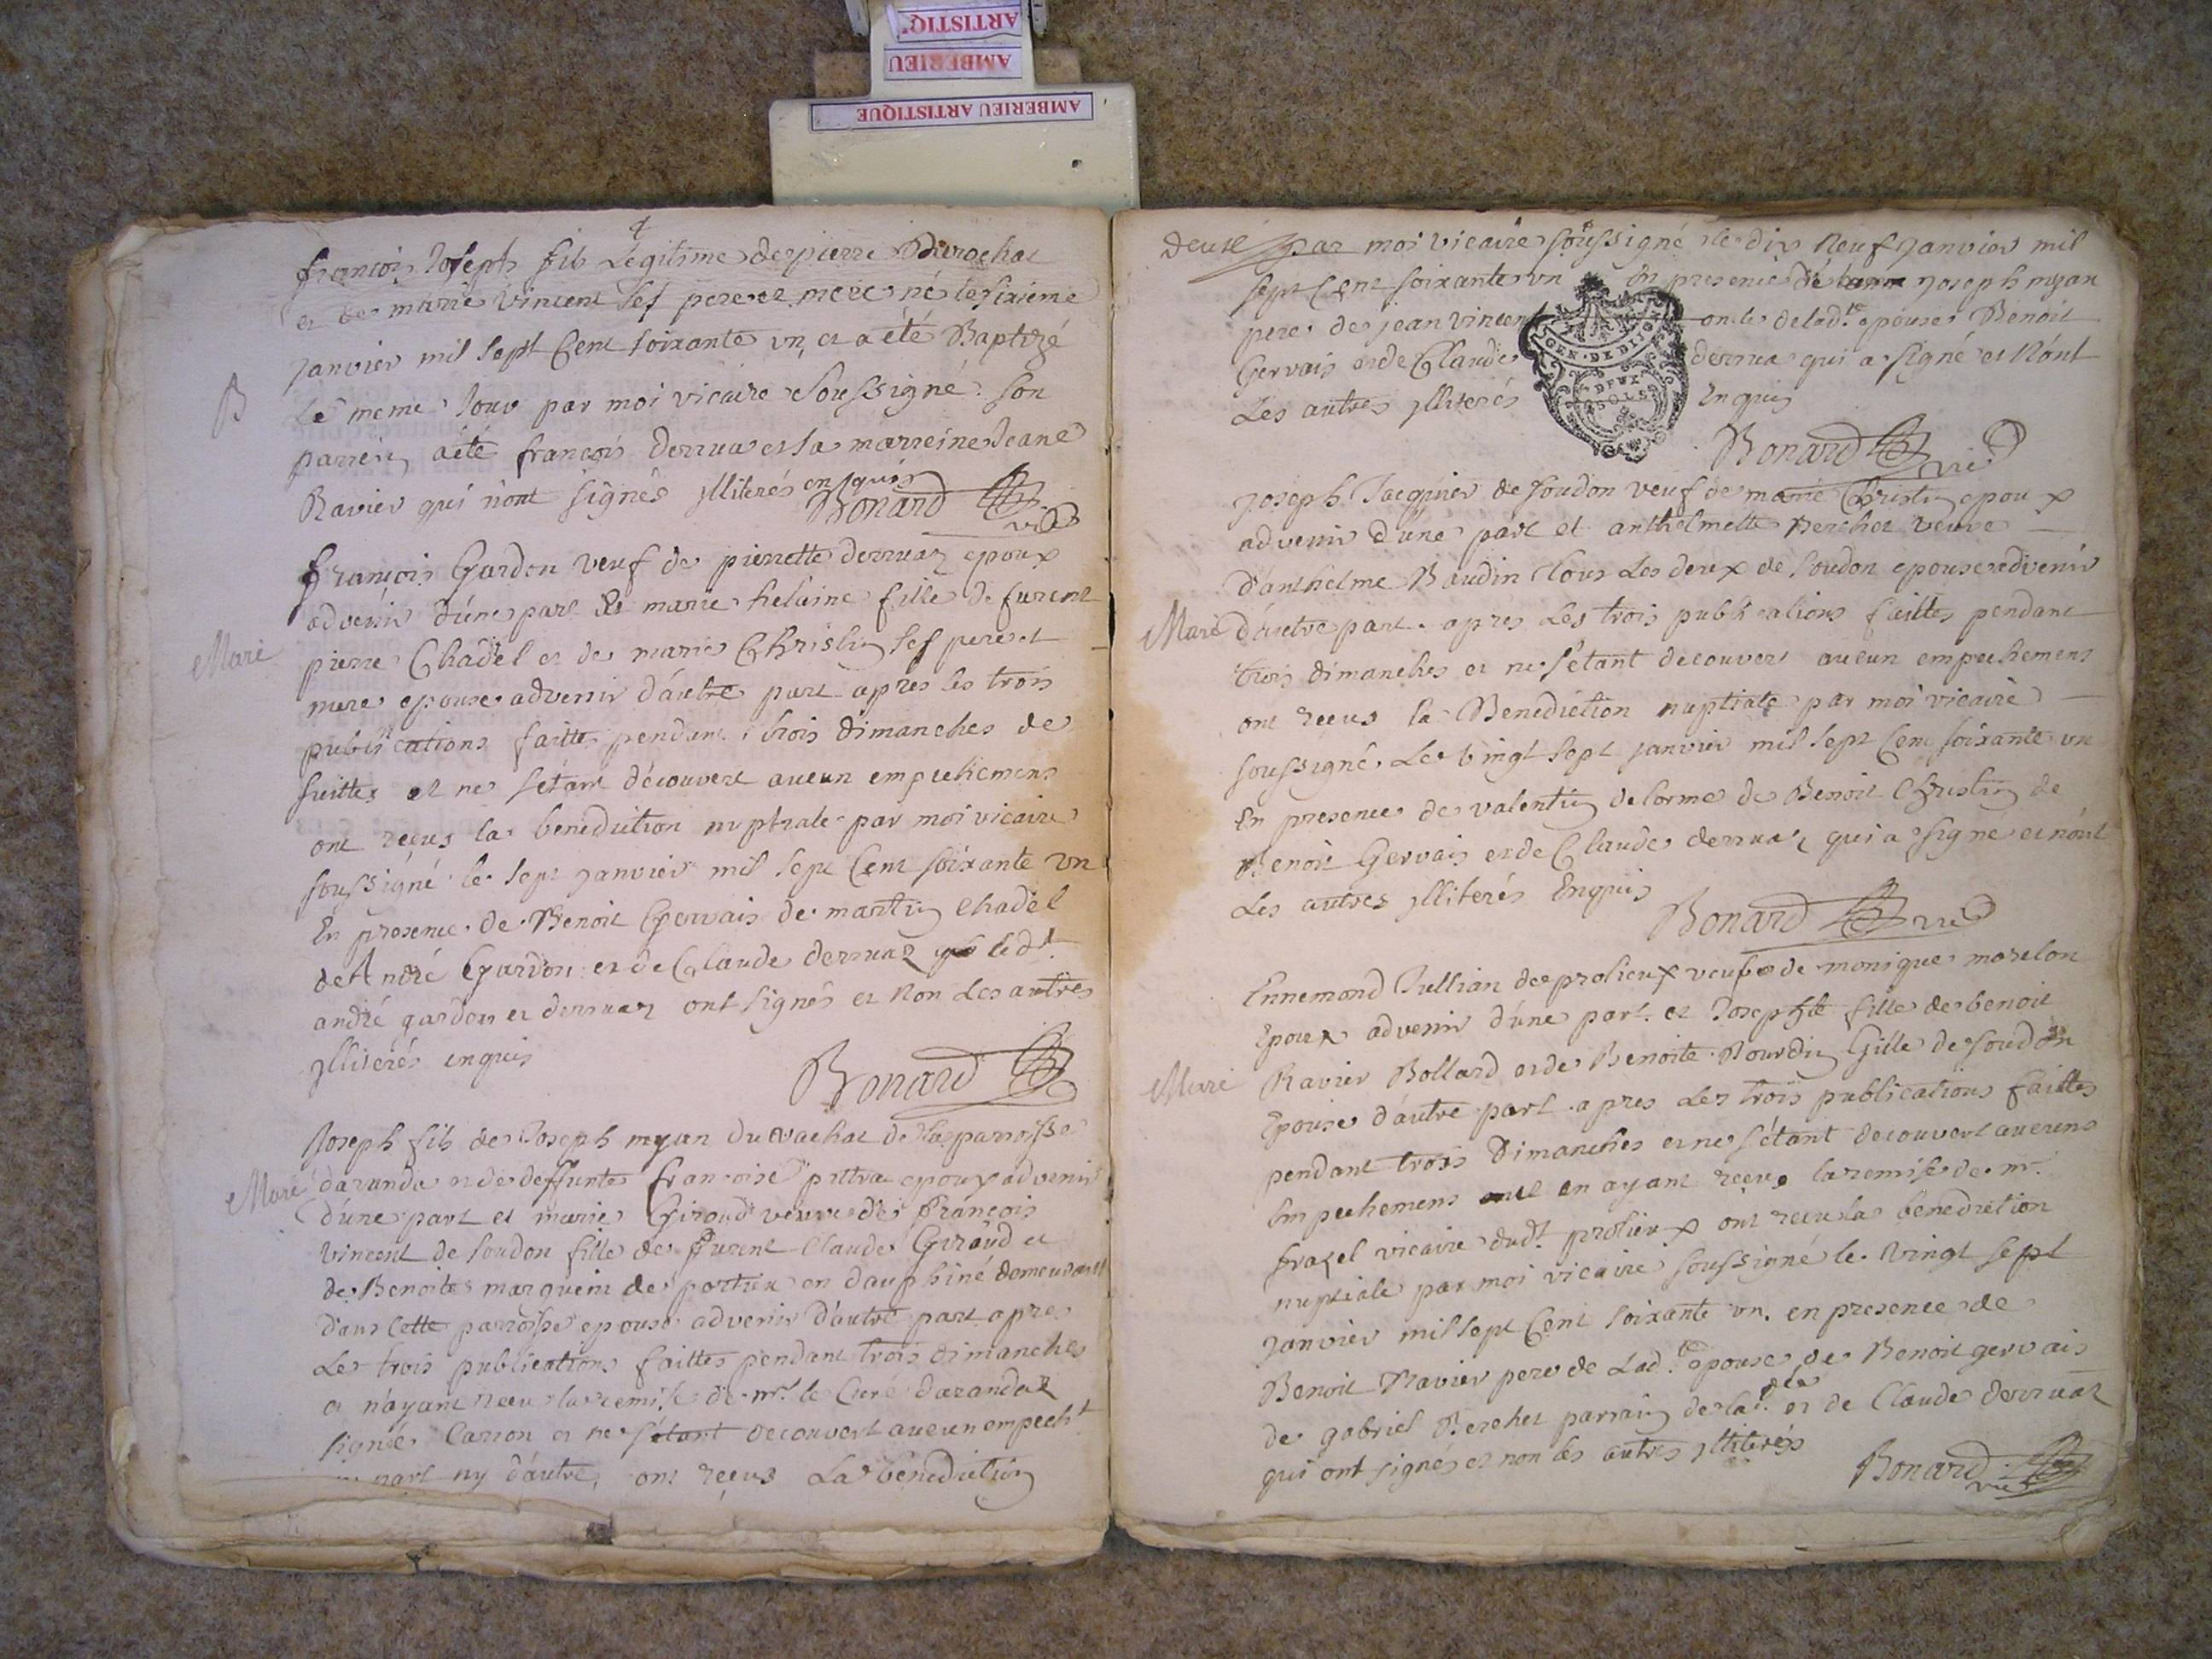 ARTISTIQ'
AMBERIEU
AMBERIEU ARTISTIQUE
françois Joseph fils Legitime de pierre
et de marie vincent ses pere et mere né le sixieme
janvier mil sept Cent soixante un, et a été Baptizé
B
Le meme Jour par moi vicaire Soussigné. son
parrein a été françois derrua et la marreine Jeane
Ravier qui n'ont signés jlliterés enquis
Bonard vic
françois Gardon veuf de pierrette derruaz epoux
advenir d'une part et marie helaine fille de furent
Marié
pierre Chadel et de marie Christin ses pere et
mere epouse advenir d'autre part apres les trois
publications faittes pendant trois dimanches de
suittes et ne s'etant découvert aucun empechemens
ont reçus la benediction nuptiale par moi vicaire
soussigné le sept janvier mil sept Cent soixante un
En presence de Benoit Gervais de martin chadel
de André Gardon et de Claude derruaz led.t
andré gardon et derruaz ont signés et Non Les autres
jlliterés enquis
Bonard
Joseph fils de Joseph myan du vachat de la parroisse
Marié
daranda et de deffunte françoise pittra epoux advenir
d'une part et marie Giroud veuve de françois
vincent de soudon fille de furent Claude Giraud et
de Benoite marquein de portieu en dauphiné demeurant
dans Cette parroisse epouse advenir d'autre part apres
Les trois publications faittes pendant trois dimanches
et n'ayant recu la remise de mr. le Curé darandaz
signée Carron et ne s'étant decouvert aucun empech.t
part ny d'autre, ont reçus La benediction
deuze par moi vicaire soussigné le dix neuf janvier mil
sept Cent soixante un En presence de Joseph myan
pere de jean vincent oncle de lad.te epouse Benoit
Gervais et de Claude derrua qui a signé et Nont
Les autres jlliterés Enquis
GEN. DE DIJON
DEUX
SOLS
Bonard vic
Joseph Jacquier de soudon veuf de marie Christin epoux
advenir d'une part et anthelmette Berchet veuve
d'anthelme Baudin tous Les deux de soudon epouse advenir
Marié
d'autre part. apres Les trois publications faittes pendant
trois dimanches et ne s'etant decouvert aucun empechemens
ont reçus la Benediction nuptiale par moi vicaire
soussigné. Le vingt sept janvier mil sept Cent soixante un
En presence de valentin delorme de Benoit Christin de
Benoit Gervais et de Claude derruaz qui a signé et nont
Les autres jlliterés Enquis
Bonard vic
Ennemond Jullian de prolieux veuf de monique morelon
Epoux advenir d'une part. et Josephte fille de benoit
Marié
Ravier Bollard et de Benoite Bourdin Gille de soudon
Epouse d'autre part. apres Les trois publications faittes
pendant trois Dimanches et ne s'étant decouvert aucuns
Empechemens en ayant reçue la remise de mr.
frazel vicaire dud.t prolieux ont recu la benediction
nuptiale par moi vicaire soussigné le vingt sept
janvier mil sept Cent soixante un. en presence de
Benoit Ravier pere de Lad.te epouse, de Benoit gervais
de gabriel Berchet parrain de lad. et de Claude derruaz
qui ont signés et non les autres jlliterés
Bonard vic